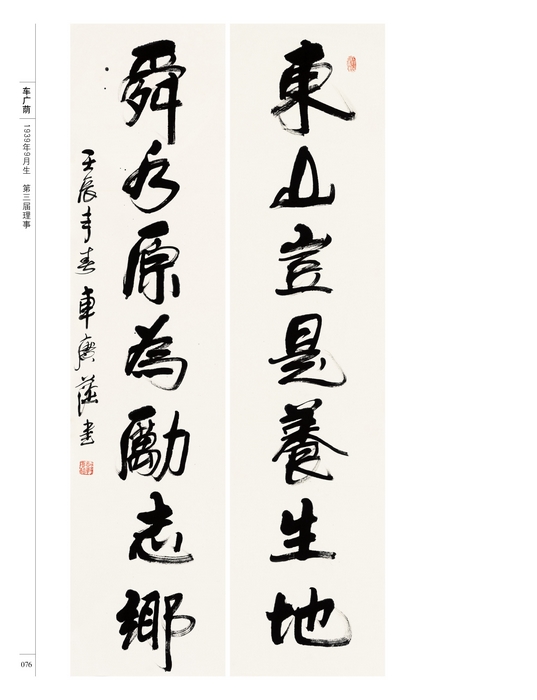 東山豈是養生地
舜水原為勵志鄉
壬辰春 車廣蔭書
车广荫 1939年9月生 第三届理事
076